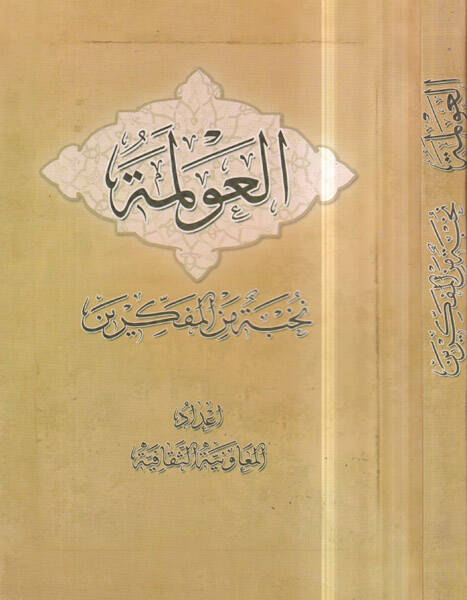 العَوْلَمَةُ
نُخْبَةٌ مِنَ المُفَكِّرِيْنَ
اعْدَادُ
المُعَاوَنِيَّةُ الثَّقَافِيَّةُ
العَوْلَمَةُ
نُخْبَةٌ مِنَ المُفَكِّرِيْنَ